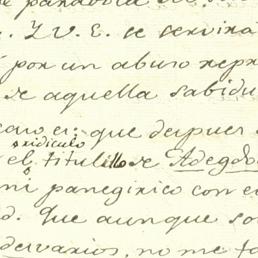 de parabola
. Y V. E. se servirá
por un abuso repr
de aquella sabidu
caro es: que despues
ridiculo
el titulillo de Adegdo
ó
mi panegirico con e
d. Que aunque so
desvarios, no me fa